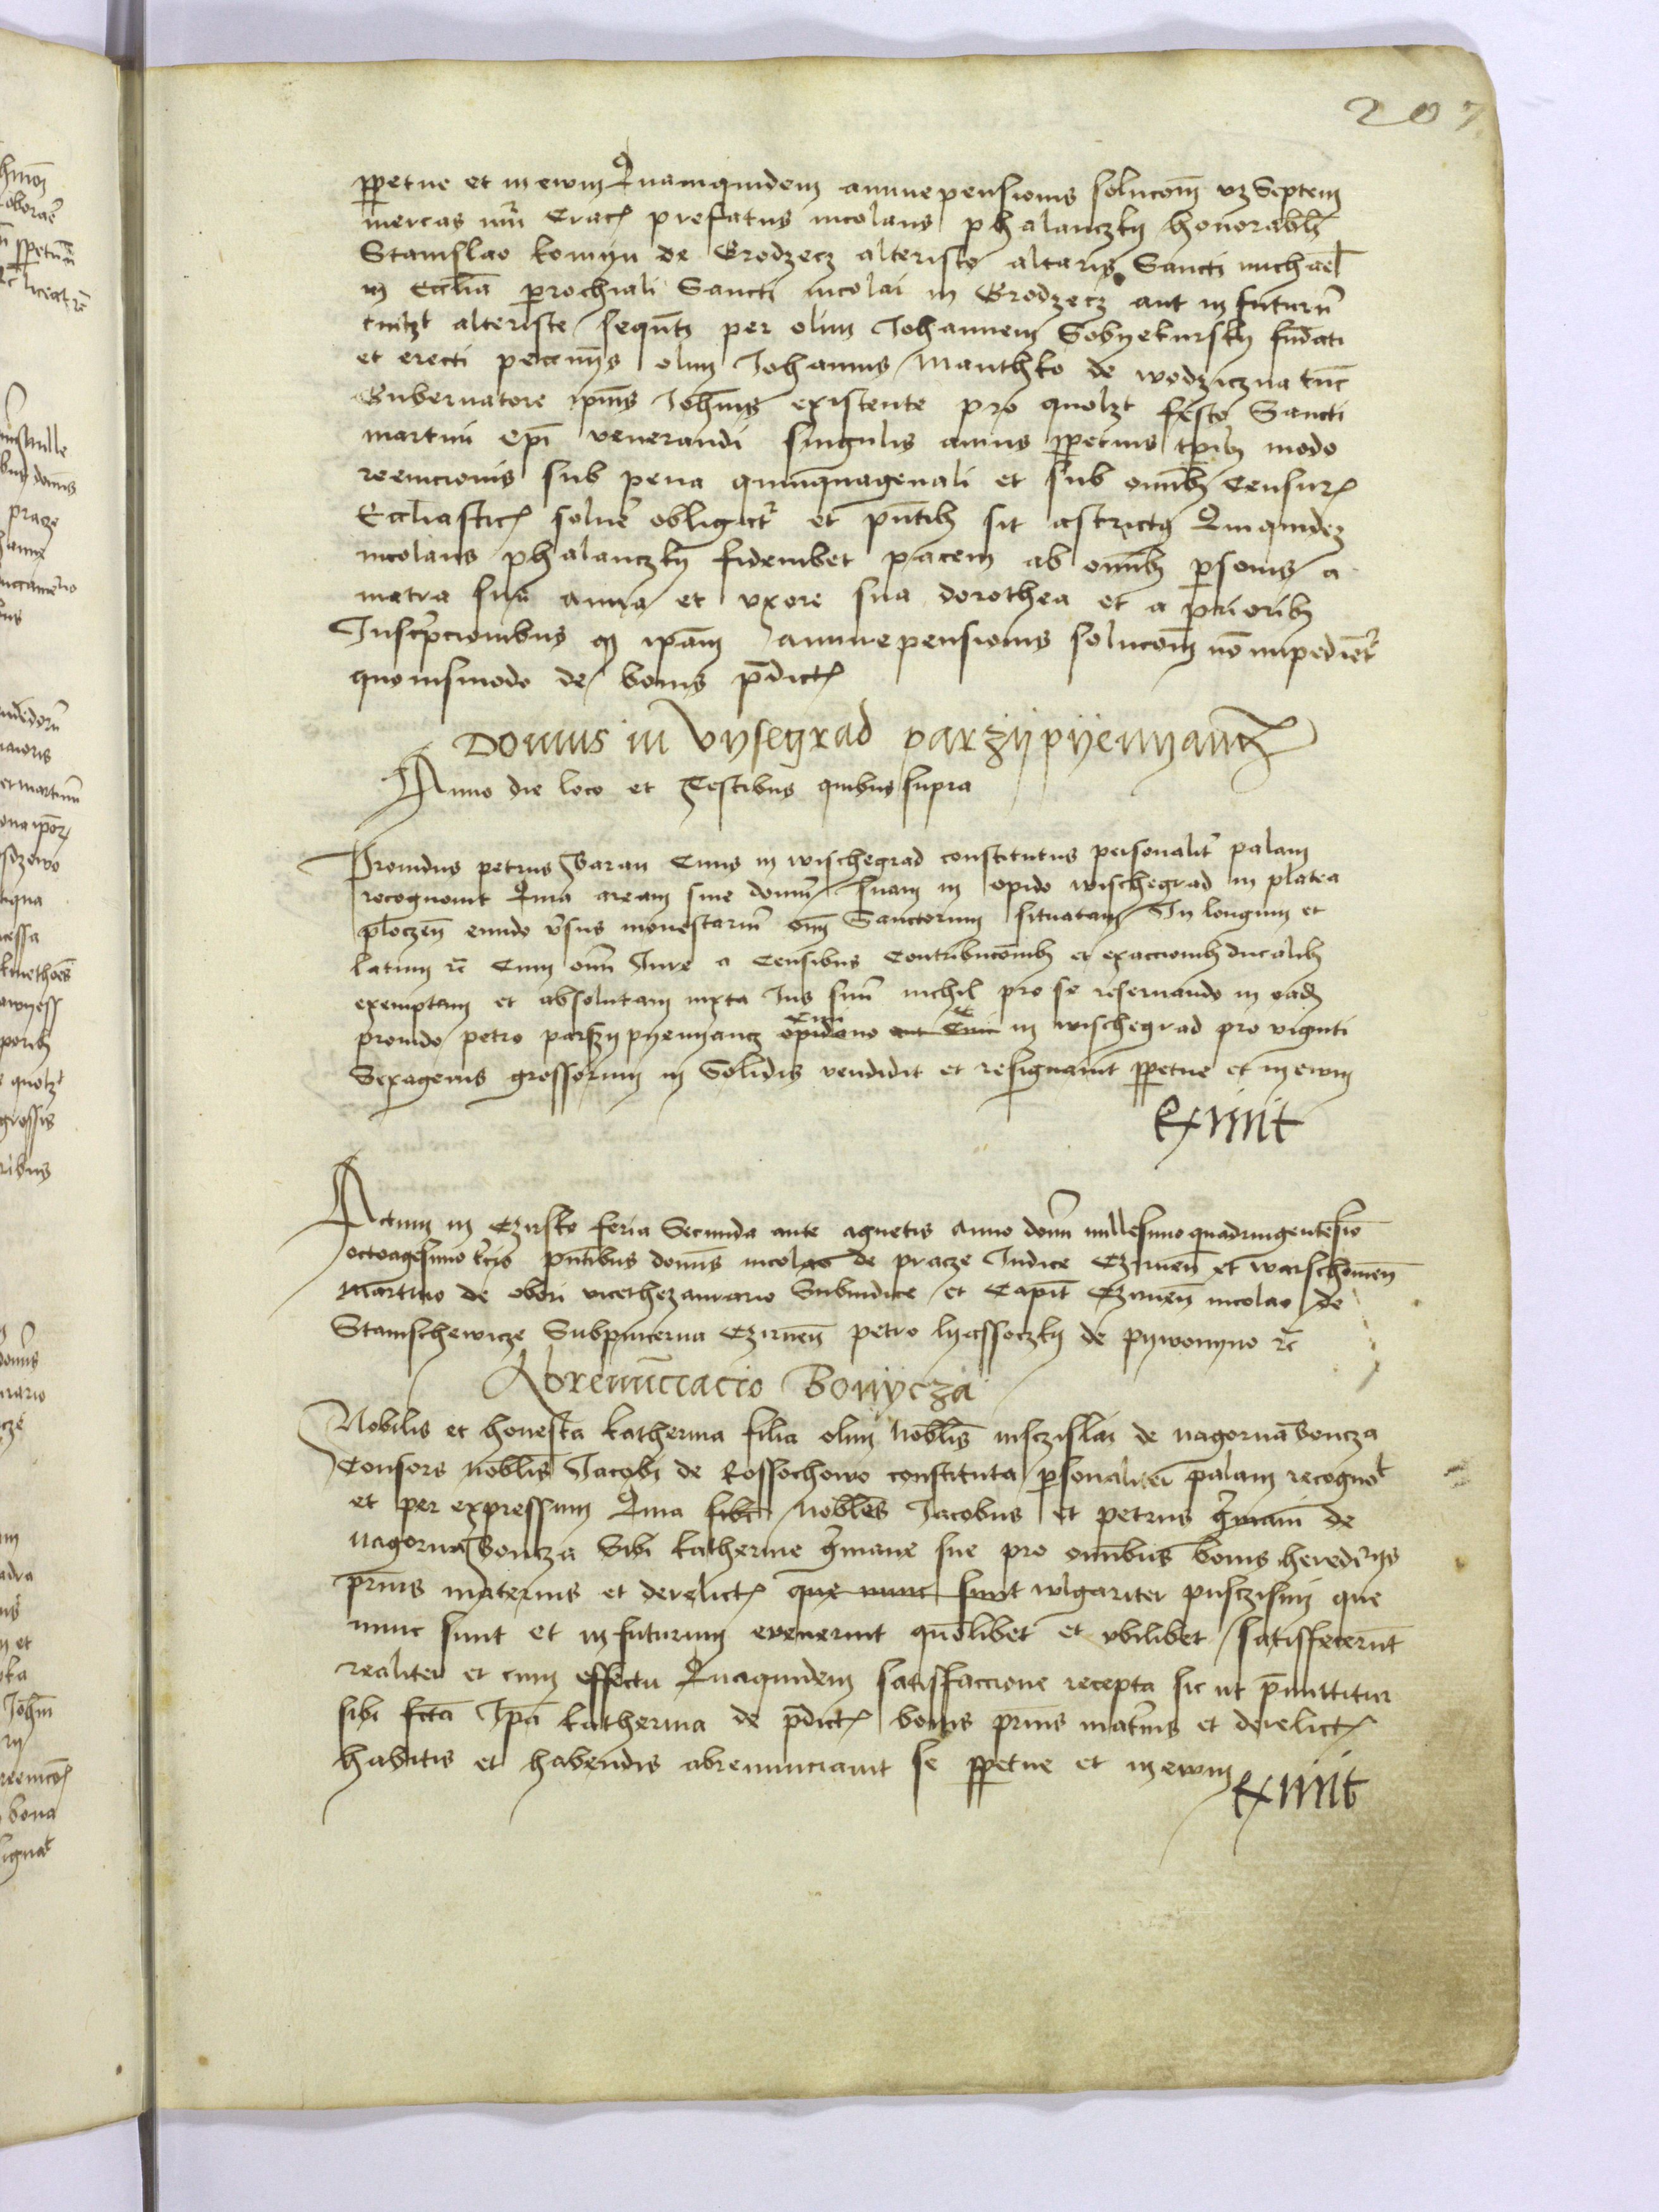 207
ꝑpetue et in ewm Quamquidem annuepensionis solucōm vz Septem
mercas nūi Craco prefatus nicolaus phalanczky honorabl
Stanislao komyn de Grodzecz alteriste altaris Sancti michael
in Ecclīa parochiali Sancti nicolai in Grodzecz aut in futurū
cuilzt alteriste sequēti per olim Johannem Gobyekursky fūdati
et erecti pecunys olim Johannis manthko de wodziczna tūc
Gubernatore ipius Johīnis existente pro quolzt festo Sancti
martini epī venerandi singulis annis ꝑpetuis tpib modo
reempcionis sub pena quinquagenali et sub omīb Censur
Eccliastic solue obligatr et pntib sit astrictus Quiquidez
nicolaus phalanczky fideiubet pacem ab omīb psonis a
matre sua anna et vxore sua dorothea et a prioribus
Inscrpcionibus q ipam annuepensionis solucōm nō impedietr
quouismodo de bonis pdict
Domus in vysegrad parzypyenyancz
Anno die loco et Testibus quibus supra
Prouidus petrus Baran Ciuis in wischegrad constitutus personalitr palam
recognouit Quia aream siue domū suam in opido wischegrad in platea
ploczen eundo vsus monestariū om Sanctorum situatam In longum et
latum rc Cum omi Jure a Censibus Contribucōnib et exaccionib ducalib
exemptam et absolutam iuxta Ius suū nichil pro se reseruando in ead
prouido petro parszypyenyancz opidano aut Ciui in wischegrad pro viginti
Sexagenis grossorum in Solidis vendidit et resignauit ꝑpetue et in ewm
Exiuit
Actum in Czirsko feria Secunda ante agnetis anno domī millesimoquadringentesīo
octoagesimo trcio pntibus domīs nicolao de pracze Iudice Czirnen et warschouien
Martino de obori vicethezaurario Subiudice et Capit Czirnen nicolao de
Stanischewicze Subpincerna Czirnen petro lyassoczky de pywonyno rc
Abrenūciacio Bonycza
Nobilis et honesta katherina filia olim noblis msczislai de nagornaboncza
Consors noblis Jacobi de Rossochowo constituta psonaliter palam recognot
et per expressum Quia sibi nobles Jacobus et petrus grmani de
nagornaboncza Sibi katherine grmane sue pro omibus bonis heredrijs
prnis maternis et derelict que nunc sunt wlgariter pusczisnij que
nunc sunt et in futurum euenerint quolibet et vbilibet satisfecerunt
realiter et cum effectu Quaquidem satisfaccione recepta sic ut pmittitur
sibi fcta Ipa katherina de pdict bonis prnis matrnis et derelict
habitis et habendis abrenunciauit se ꝑpetue et in ewm
Exiuit